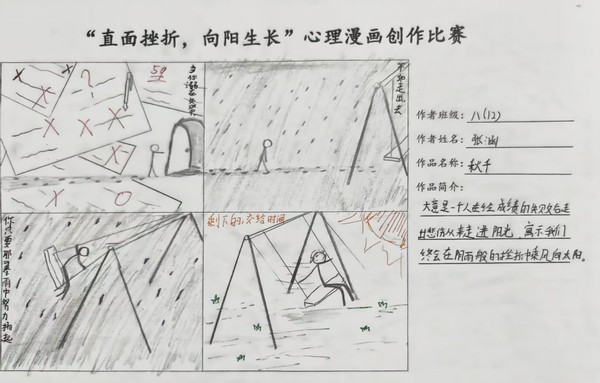 “直面挫折，向阳生长”心理漫画创作比赛
59
?
不如走出去
剩下的，交给时间
作者班级：八(12)
作者姓名：张涵
作品名称：秋千
作品简介：
大意是一个人走经成绩的失败后走
出悲伤从来走进阳光，寓示我们
终会在阴雨般的挫折中乘风向太阳。